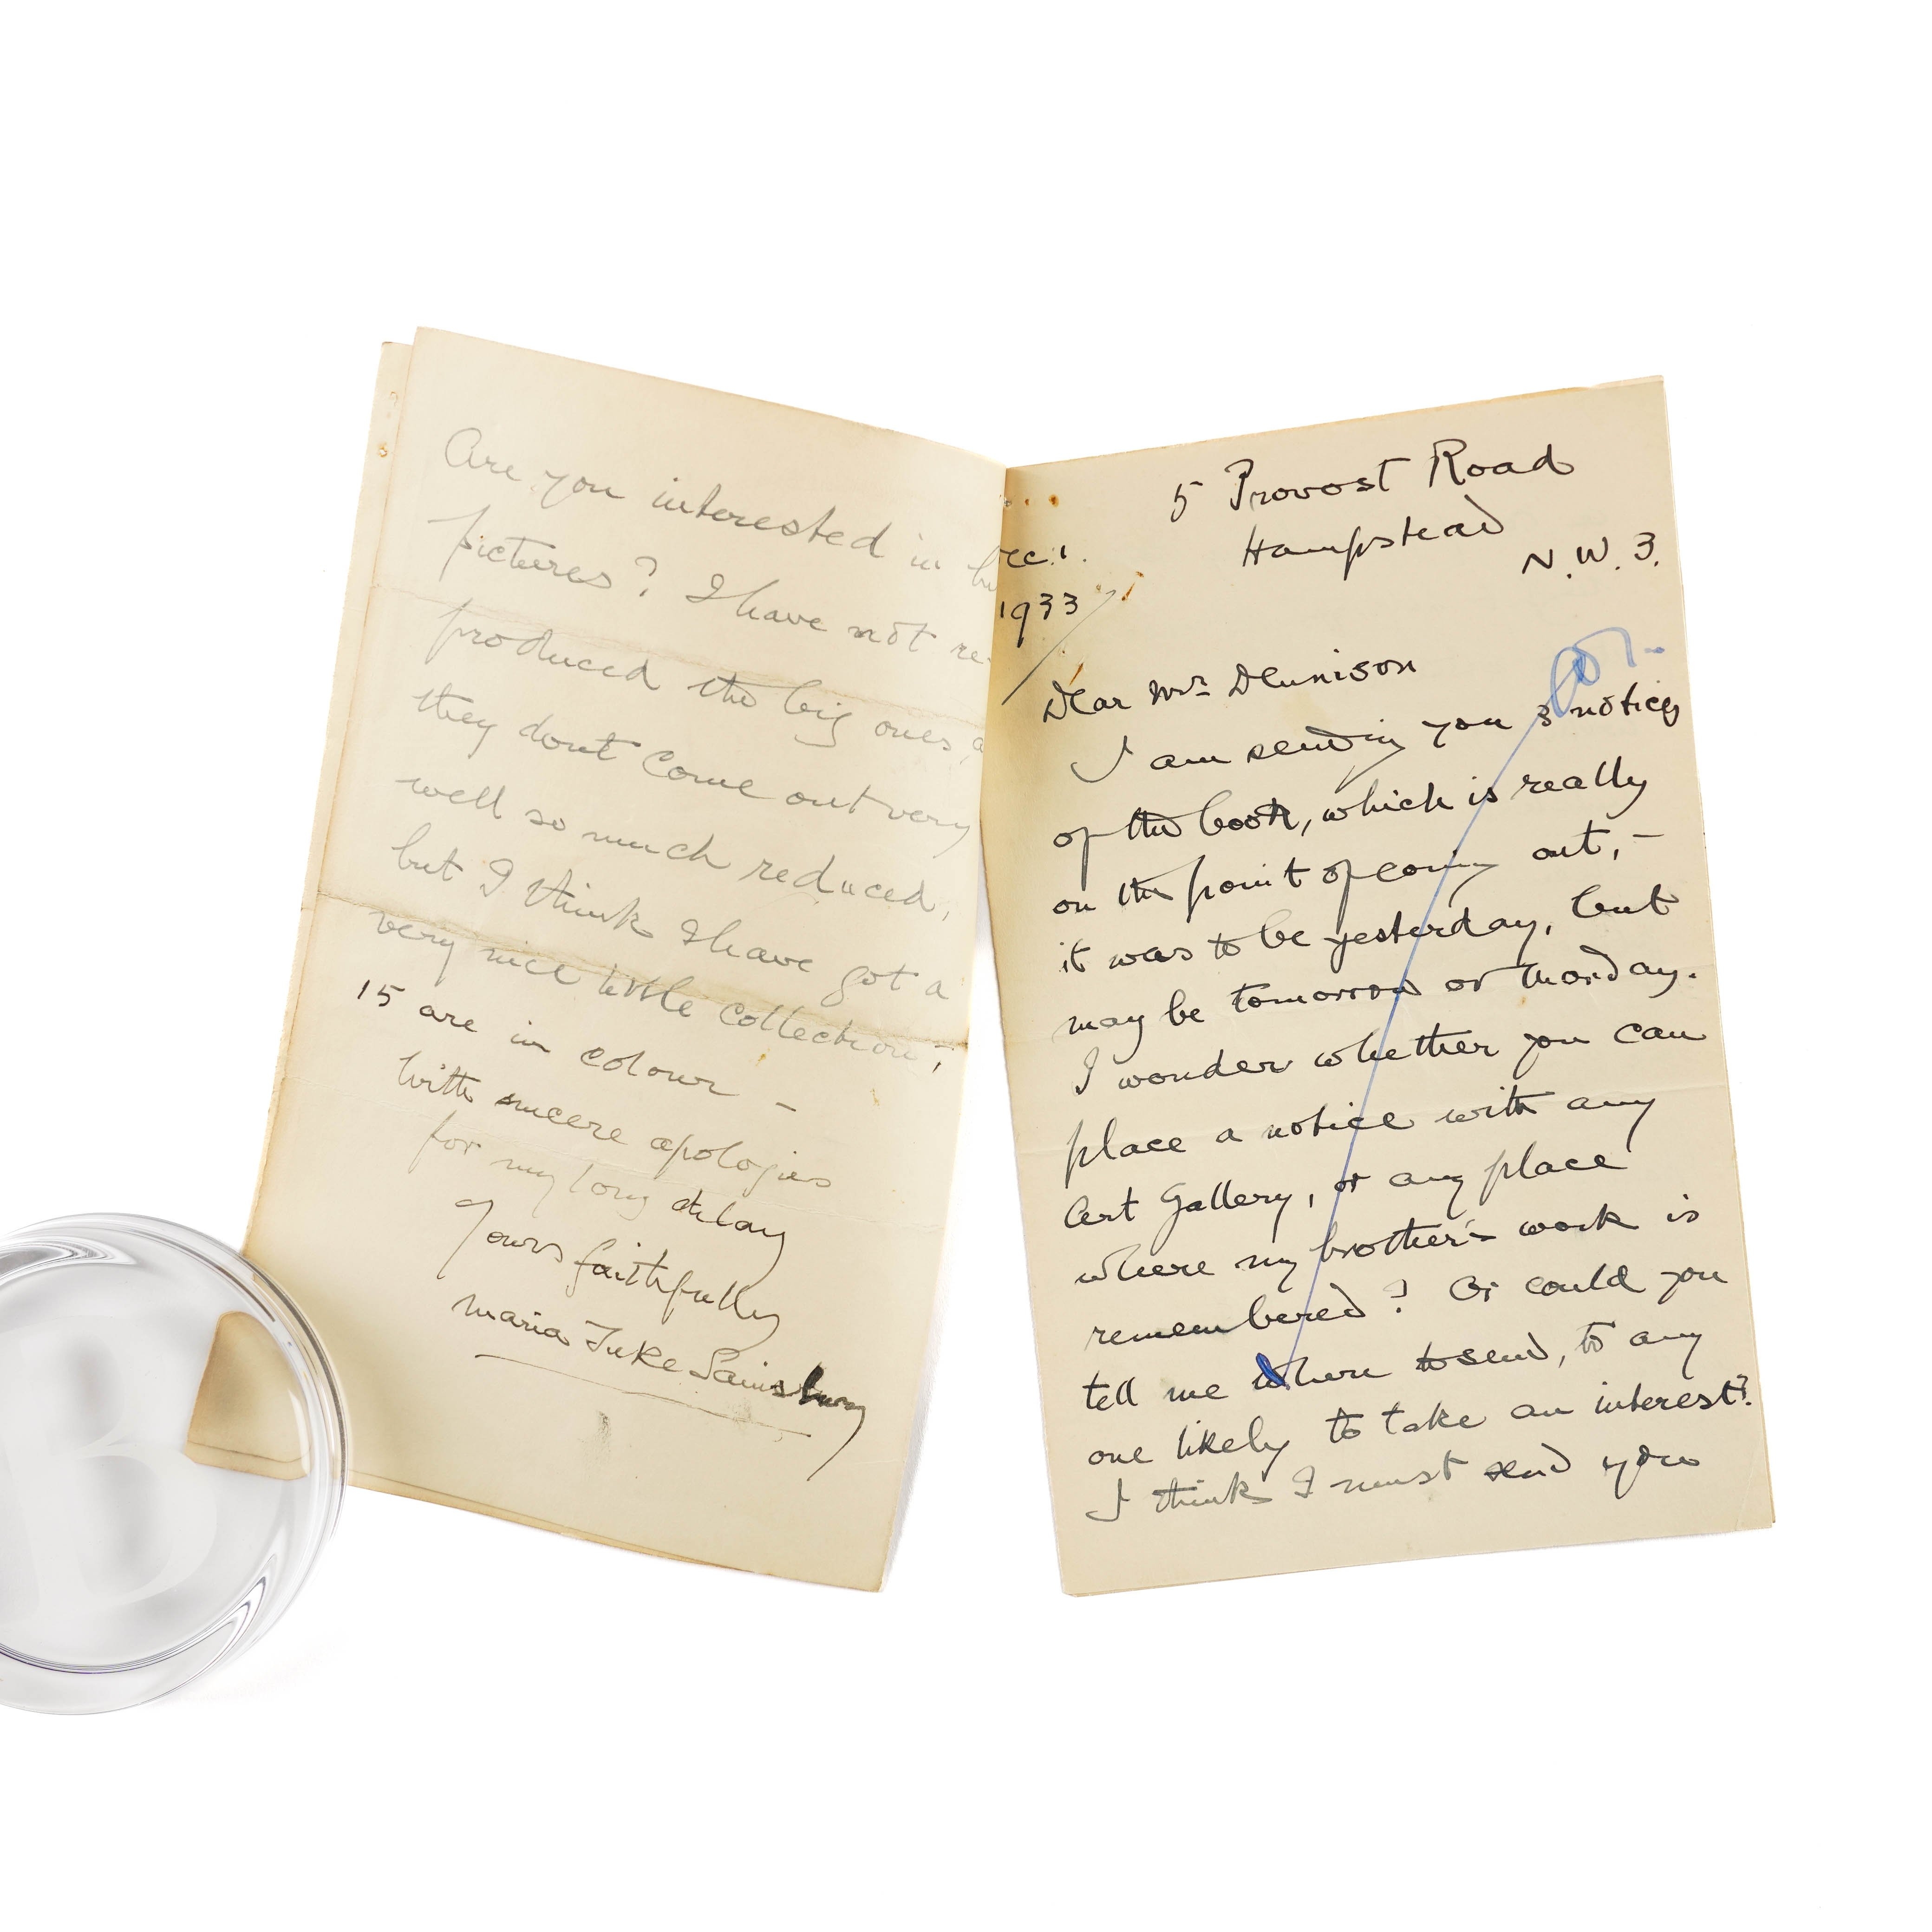 5 Provost Road
Hampstead
N.W.3.
ec.1.
1933
Dear Mr Dennison
I am sending you 3 notices
of the book, which is really
on the point of coming out, –
it was to be yesterday, but
may be tomorrow or Monday.
I wonder whether you can
place a notice with any
Art Gallery, or any place
where my brother's work is
remembered? Or could you
tell me where to send, to any
one likely to take an interest?
I think I must send you
Are you interested in
pictures? I have not re-
produced the big ones, a
they dont come out very
well so much reduced,
but I think I have got a
very nice little collection;
15 are in colour –
With sincere apologies
for my long delay
Yours faithfully
Maria Tuke Sainsbury
B